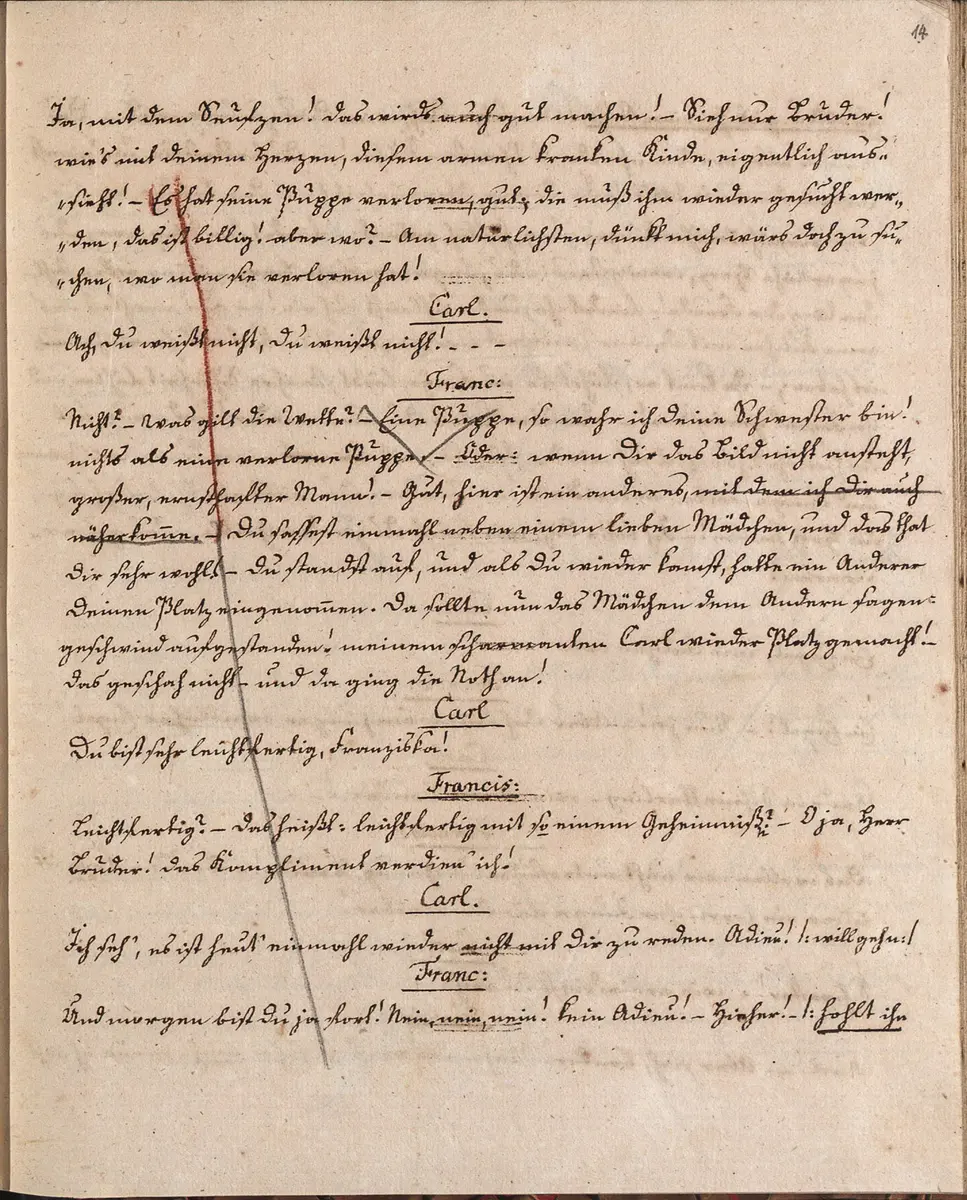 14
Ja, mit dem Seufzen! das wirds auch gut machen! – Sieh nur Bruder!
wie's mit deinem Herzen, diesem armen kranken Kinde, eigentlich aus„
„sieht! – Es hat seine Puppe verloren, gut, die muß ihm wieder gesucht wer„
„den, das ist billig! aber wo? – Am natürlichsten, dünkt mich, wärs doch zu su„
„chen, wo man sie verloren hat!
Carl.
Ach, Du weißt nicht, Du weißt nicht! – – –
Franc:
Nicht? – Was gilt die Wette? – Eine Puppe, so wahr ich deine Schwester bin!
nichts als eine verlorne Puppe! – Oder: wenn Dir das Bild nicht ansteht,
großer, ernsthafter Mann! – Gut, hier ist ein anderes, mit dem ich Dir auch
näher komme. – Du sassest einmahl neben einem lieben Mädchen, und das that
Dir sehr wohl! – Du standst auf, und als Du wieder kamst, hatte ein Anderer
Deinen Platz eingenommen. Da sollte nun das Mädchen dem Andern sagen:
geschwind aufgestanden! meinem scharmanten Carl wieder Platz gemacht! –
das geschah nicht – und da ging die Noth an!
Carl
Du bist sehr leichtfertig, Franziska!
Francis:
Leichtfertig? – Das heißt: leichtfertig mit so einem Geheimniß? – O ja, Herr
Bruder! das Kompliment verdien' ich!
Carl.
Ich seh', es ist heut' einmahl wieder nicht mit Dir zu reden. Adieu! /: will gehn :/
Franc:
Und morgen bist Du ja fort! Nein, nein, nein! kein Adieu! – Hieher! – /: hohlt ihn